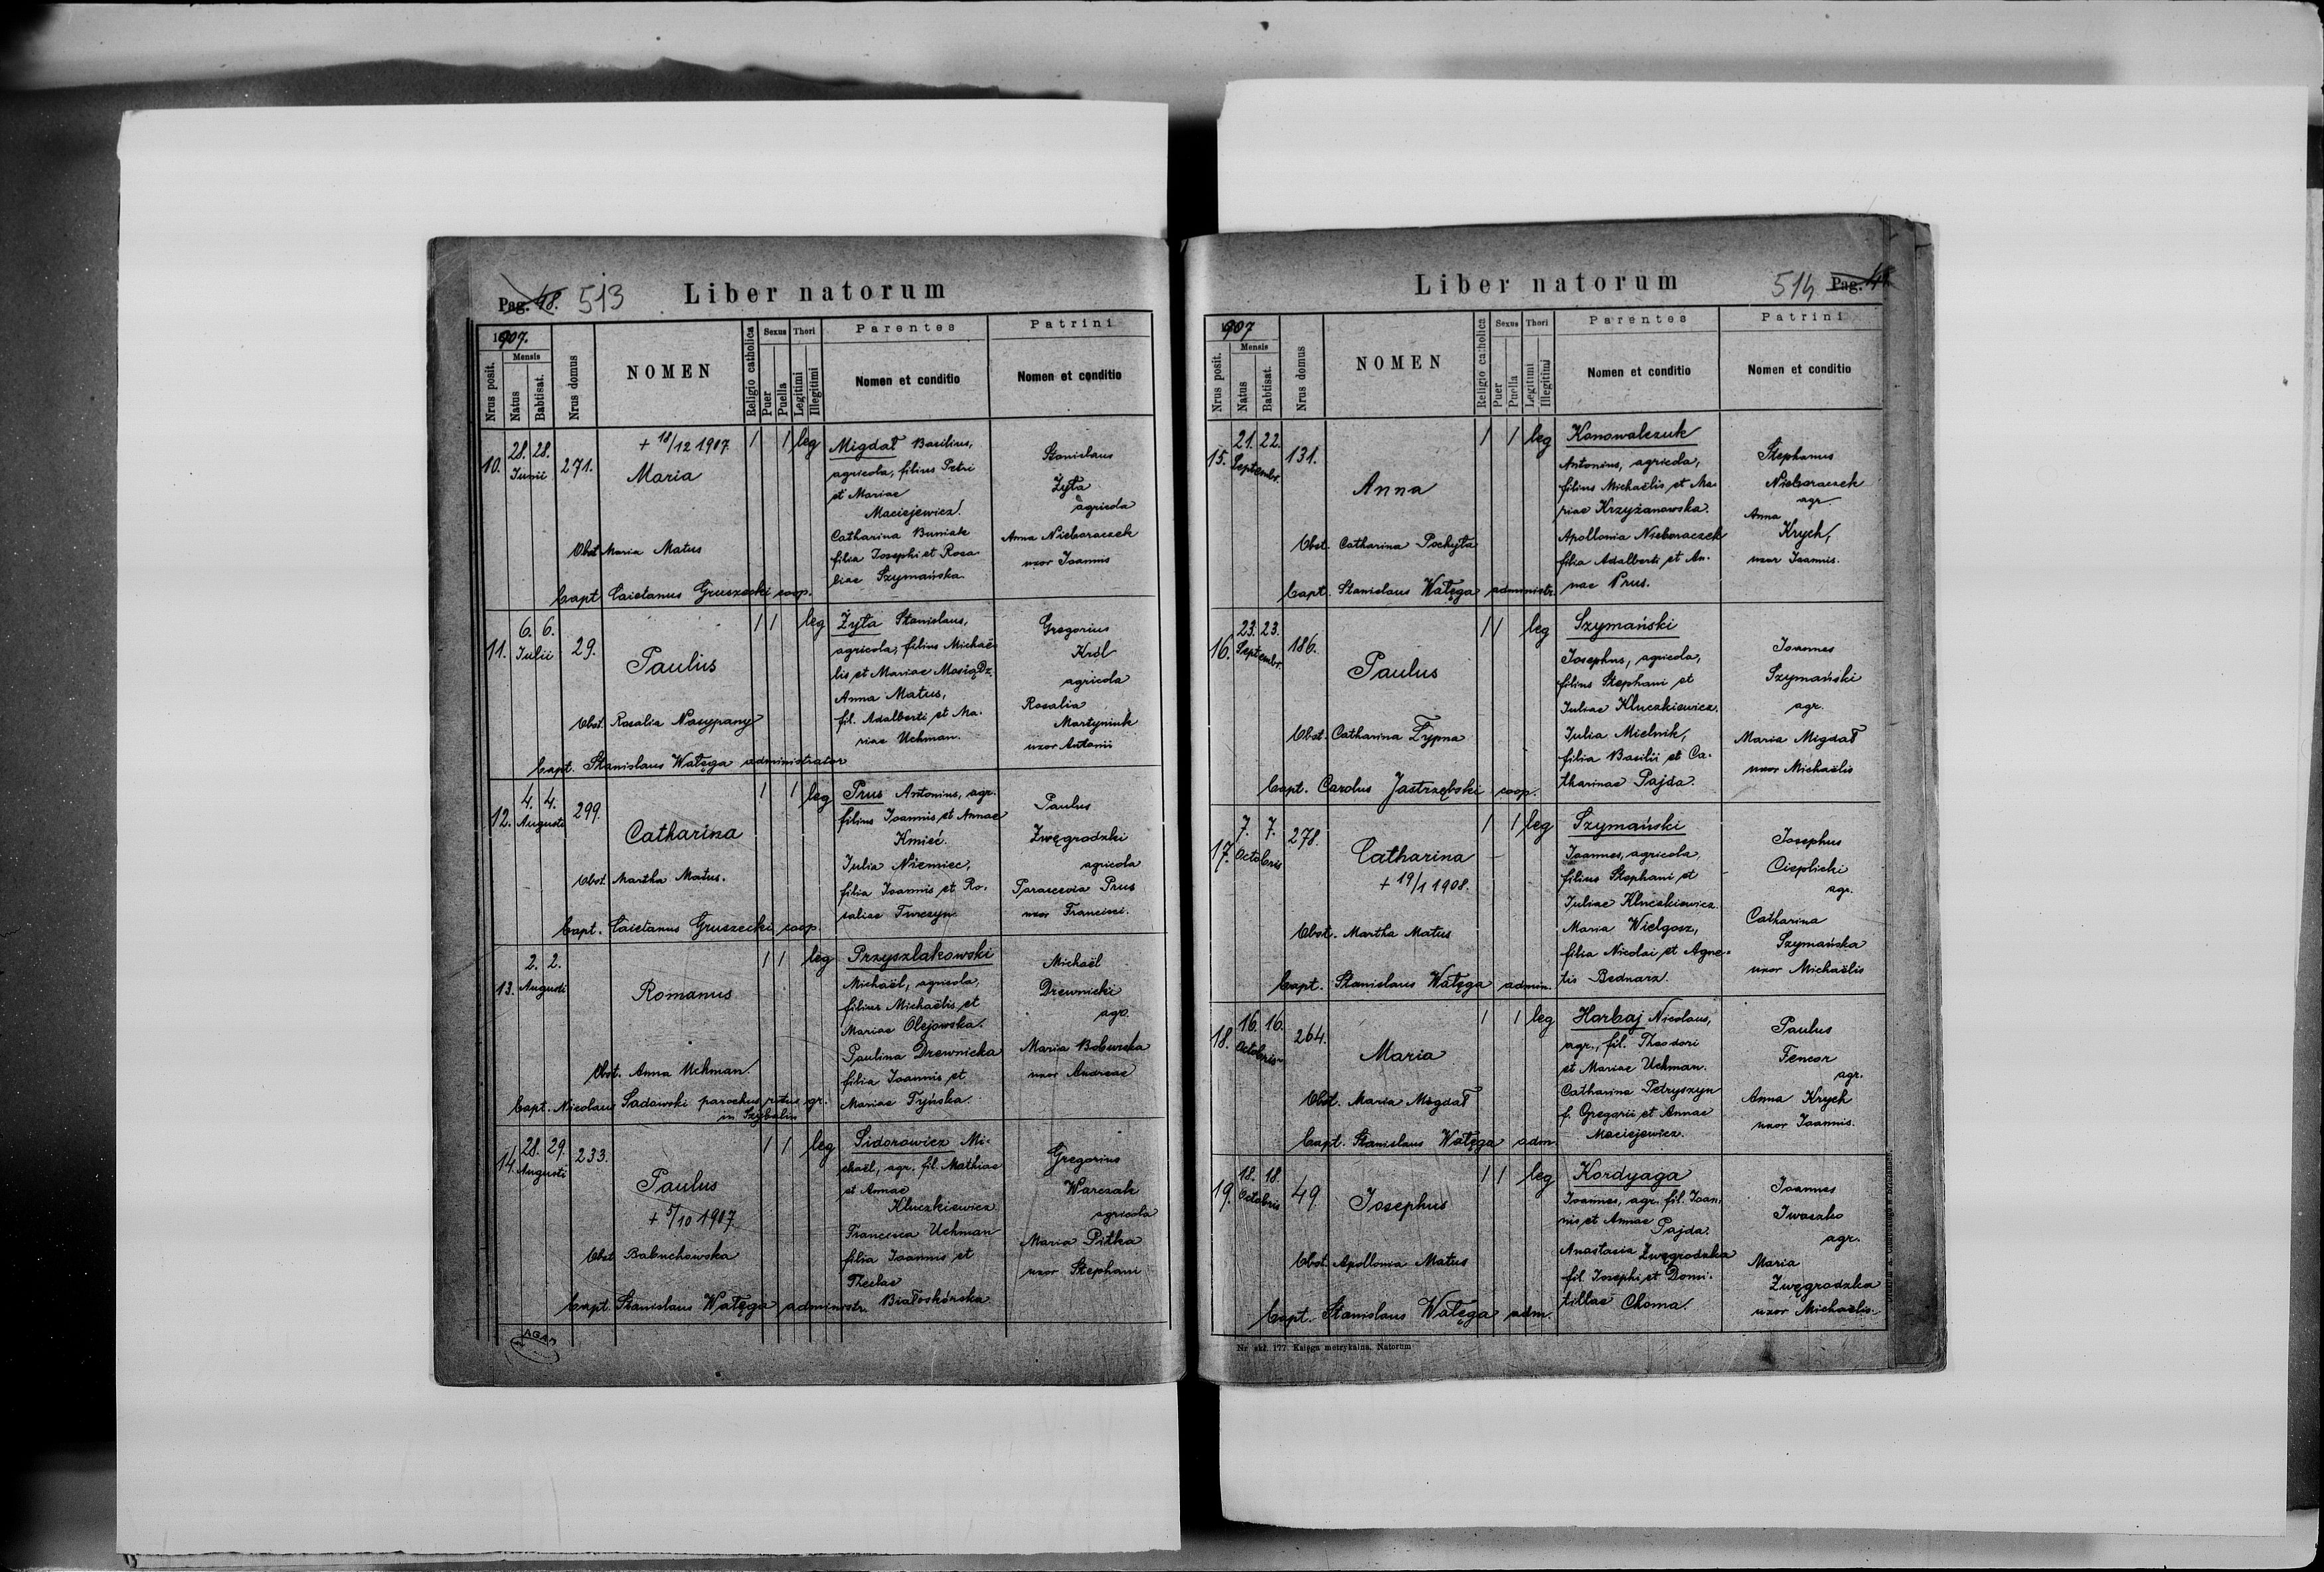 Pag. 48. 513
Liber natorum
1907.
Nrus posit.
Mensis
Natus
Babtisat.
Nrus domus
NOMEN
Religio catholica
Sexus
Puer
Puella
Thori
Legitimi
Illegitimi
Parentes
Nomen et conditio
Patrini
Nomen et conditio
10.
28. 28.
Iunii
271.
+ 18/12 1907.
Maria
1 1 leg
Migdał Basilius,
agricola, filius Petri
et Mariae
Maciejewicz.
Catharina Buniak
filia Iosephi et Rosa
liae Szymańska.
Stanislaus
Żyta
agricola
Anna Nieboraczek
uxor Ioannis
Obst. Maria Matus
Bapt. Caietanus Gruszecki coop.
11.
6. 6.
Iulii
29.
Paulus
1 1 leg
Żyta Stanislaus,
agricola, filius Michaë
lis et Mariae Mosiądz.
Anna Matus,
fil. Adalberti et Ma.
riae Uchman.
Gregorius
Król
agricola
Rosalia
Martyniuk
uxor Antonii
Obst. Rosalia Nasypany
Bapt. Stanislaus Wałęga administrator
12.
4. 4.
Augusti
299.
Catharina
1 1 leg
Prus Antonius, agr.
filius Ioannis et Annae
Kmieć.
Iulia Niemiec,
filia Ioannis et Ro.
saliae Turczyn
Paulus
Zwęgrodzki
agricola
Parascevia Prus
uxor Francisci.
Obst. Martha Matus.
Bapt. Caietanus Gruszecki coop.
13.
2. 2.
Augusti
Romanus
1 1 leg
Przyszlakowski
Michaël, agricola,
filius Michaëlis et
Mariae Olejowska.
Paulina Drewnicka
filia Ioannis et
Mariae Tyńska.
Michaël
Drewnicki
agr.
Maria Boburska
uxor Andreae
Obst. Anna Uchman
Bapt. Nicolaus Sadowski parochus ritus gr.
in Szybalin
14.
28. 29.
Augusti
233.
Paulus
+ 5/10 1907.
1 1 leg
Sidorowicz Mi-
chaël, agr. fil. Mathiae
et Annae
Kluczkiewicz
Francisca Uchman
filia Ioannis et
Theclae
Białoskórska
Gregorius
Warczak
agricola
Maria Pitka
uxor Stephani
Obst. Babuchowska
Bapt. Stanislaus Wałęga administr.
AGAD
Liber natorum
514 Pag.
1907
Nrus posit.
Mensis
Natus
Babtisat.
Nrus domus
NOMEN
Religio catholica
Sexus
Puer
Puella
Thori
Legitimi
Illegitimi
Parentes
Nomen et conditio
Patrini
Nomen et conditio
15.
21. 22.
Septembr.
131.
Anna
1 1 leg
Konowalczuk
Antonius, agricola,
filius Michaëlis et Ma.
riae Krzyżanowska.
Apollonia Nieboraczek
filia Adalberti et An.
nae Prus.
Stephanus
Nieboraczek
agr.
Anna
Krych,
uxor Ioannis.
Obst. Catharina Pochyta
Bapt. Stanislaus Wałęga administr.
16.
23. 23.
Septembr.
186.
Paulus
1 1 leg
Szymański
Iosephus, agricola,
filius Stephani et
Iuliae Kluczkiewicz.
Iulia Mielnik,
filia Basilii et Ca-
tharinae Pajda.
Ioannes
Szymański
agr.
Maria Migdał
uxor Michaëlis
Obst. Catharina Zypna
Bapt. Carolus Jastrzębski coop.
17.
7. 7.
Octobris
278.
Catharina
+ 19/1 1908.
1 1 leg
Szymański
Ioannes, agricola,
filius Stephani et
Iuliae Kluczkiewicz.
Maria Wielgosz,
filia Nicolai et Agne-
tis Bednarz.
Iosephus
Cieplicki
agr.
Catharina
Szymańska
uxor Michaëlis
Obst. Martha Matus
Bapt. Stanislaus Wałęga admin.
18.
16. 16.
Octobris
264.
Maria
1 1 leg
Harbaj Nicolaus,
agr., fil. Theodori
et Mariae Uchman.
Catharina Petryszyn
f. Gregorii et Annae
Maciejewicz.
Paulus
Fencor
agr.
Anna Krych
uxor Ioannis.
Obst. Maria Migdał
Bapt. Stanislaus Wałęga adm.
19.
18. 18.
Octobris
49.
Iosephus
1 1 leg
Kordyaga
Ioannes, agr. fil. Ioan.
nis et Annae Pajda.
Anastasia Zwęgrodzka
fil. Iosephi et Domi.
tillae Choma.
Ioannes
Iwaszko
agr.
Maria
Zwęgrodzka
uxor Michaëlis.
Obst. Apollonia Matus
Bapt. Stanislaus Wałęga adm.
Nr. skł. 177. Księga metrykalna. Natorum